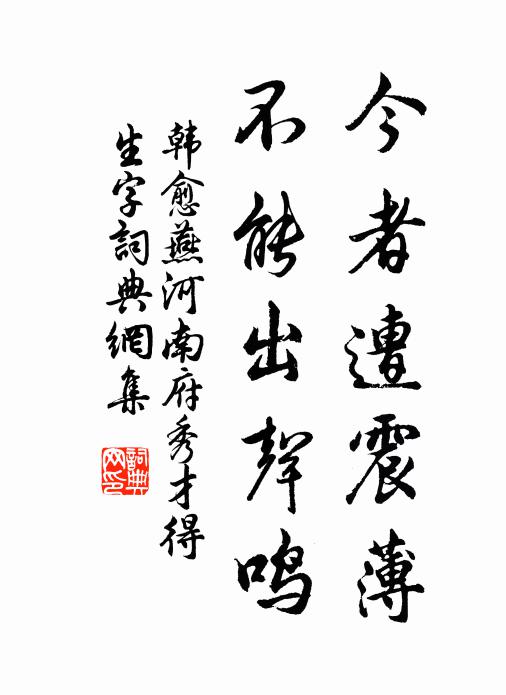 今者遭震薄
不能出聲鳴
韩愈燕河南府秀才得
生字詞典網集
詞典
网印